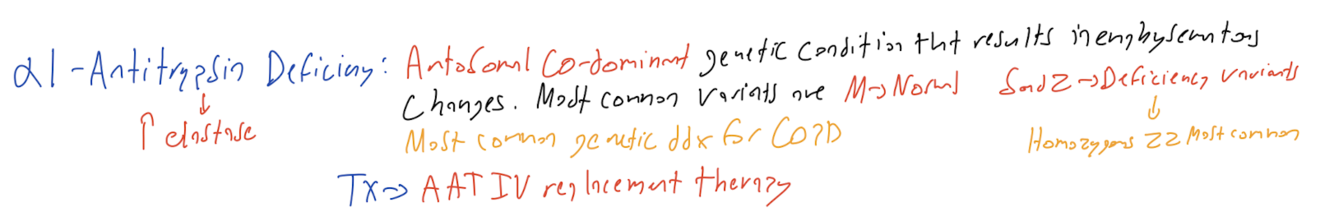 α1-Antitrypsin Deficiency: Autosomal Co-dominant genetic condition that results in emphysematous
Changes. Most common variants are M→Normal S and Z→Deficiency variants
↓
↑ elastase
Most common genetic ddx for COPD
↓
Homozygous ZZ Most common
Tx⇒ AAT IV replacement therapy